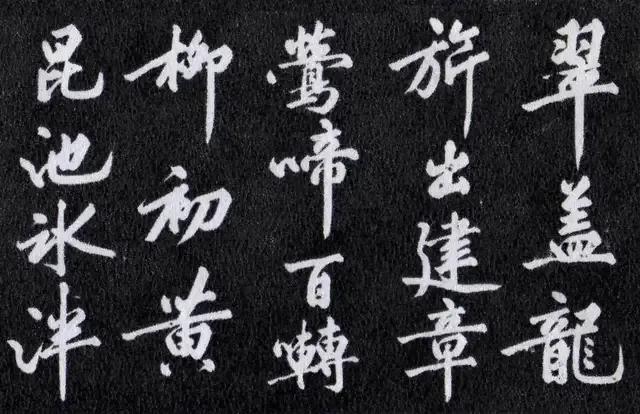 翠盖龍
旂出建章
鶯啼百囀
柳初黄
昆池冰泮